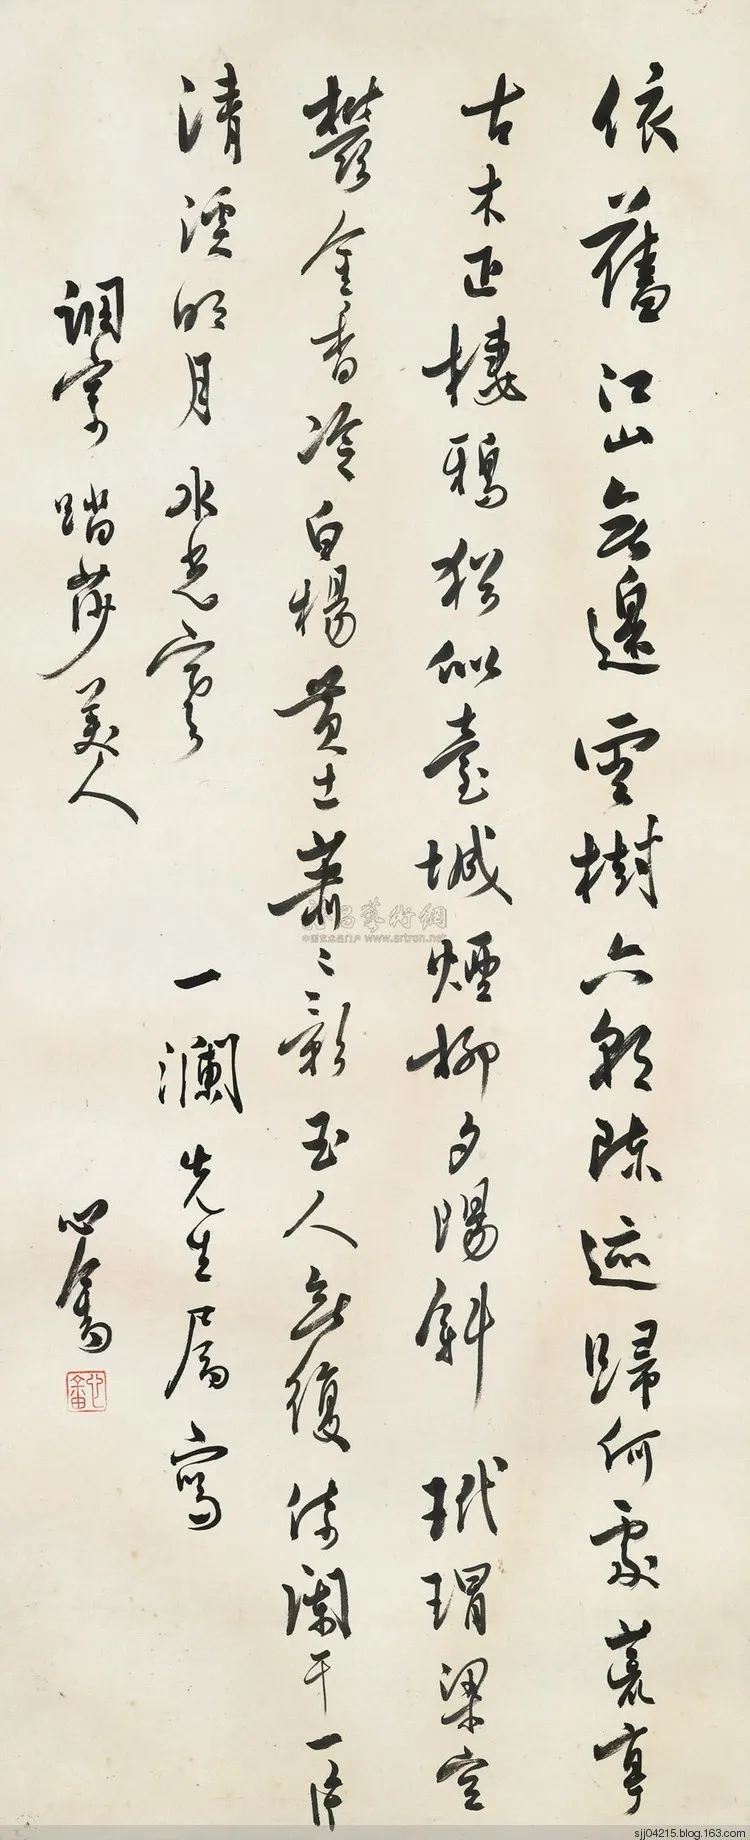 依舊江山無邊雲樹六朝陳迹歸何處荒亭
古木正棲鴉猶似臺城煙柳夕陽斜 玳瑁梁空
鬱金香冷白楊黃土蕭〻影玉人無復倚闌干一片
清溪明月水光寒 一瀾先生屬寫
調寄踏莎美人 心畬
雅昌藝術網
中国艺术品门户 www.artron.net
sjj04215.blog.163.com